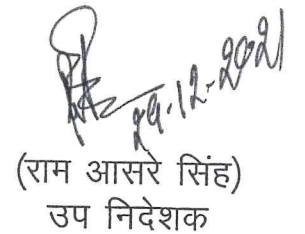 29-12-2021
(राम आसरे सिंह)
उप निदेशक